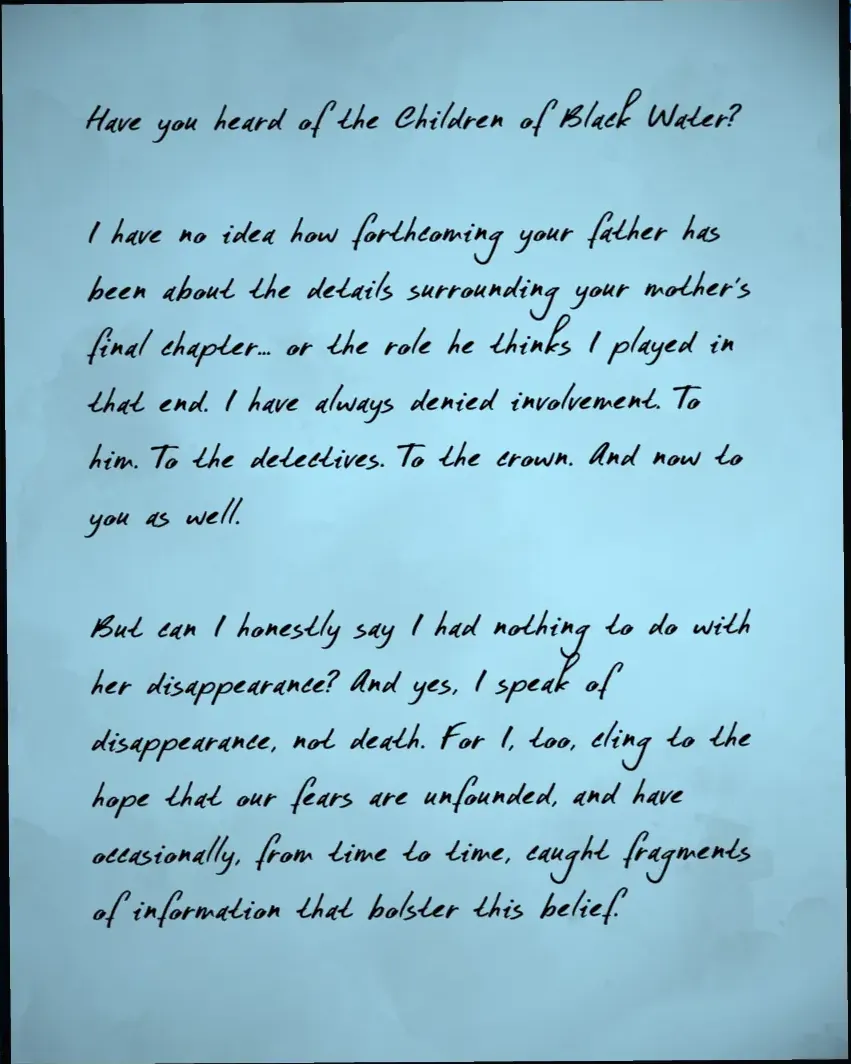 Have you heard of the Children of Black Water?
I have no idea how forthcoming your father has
been about the details surrounding your mother's
final chapter... or the role he thinks I played in
that end. I have always denied involvement. To
him. To the detectives. To the crown. And now to
you as well.
But can I honestly say I had nothing to do with
her disappearance? And yes, I speak of
disappearance, not death. For I, too, cling to the
hope that our fears are unfounded, and have
occasionally, from time to time, caught fragments
of information that bolster this belief.